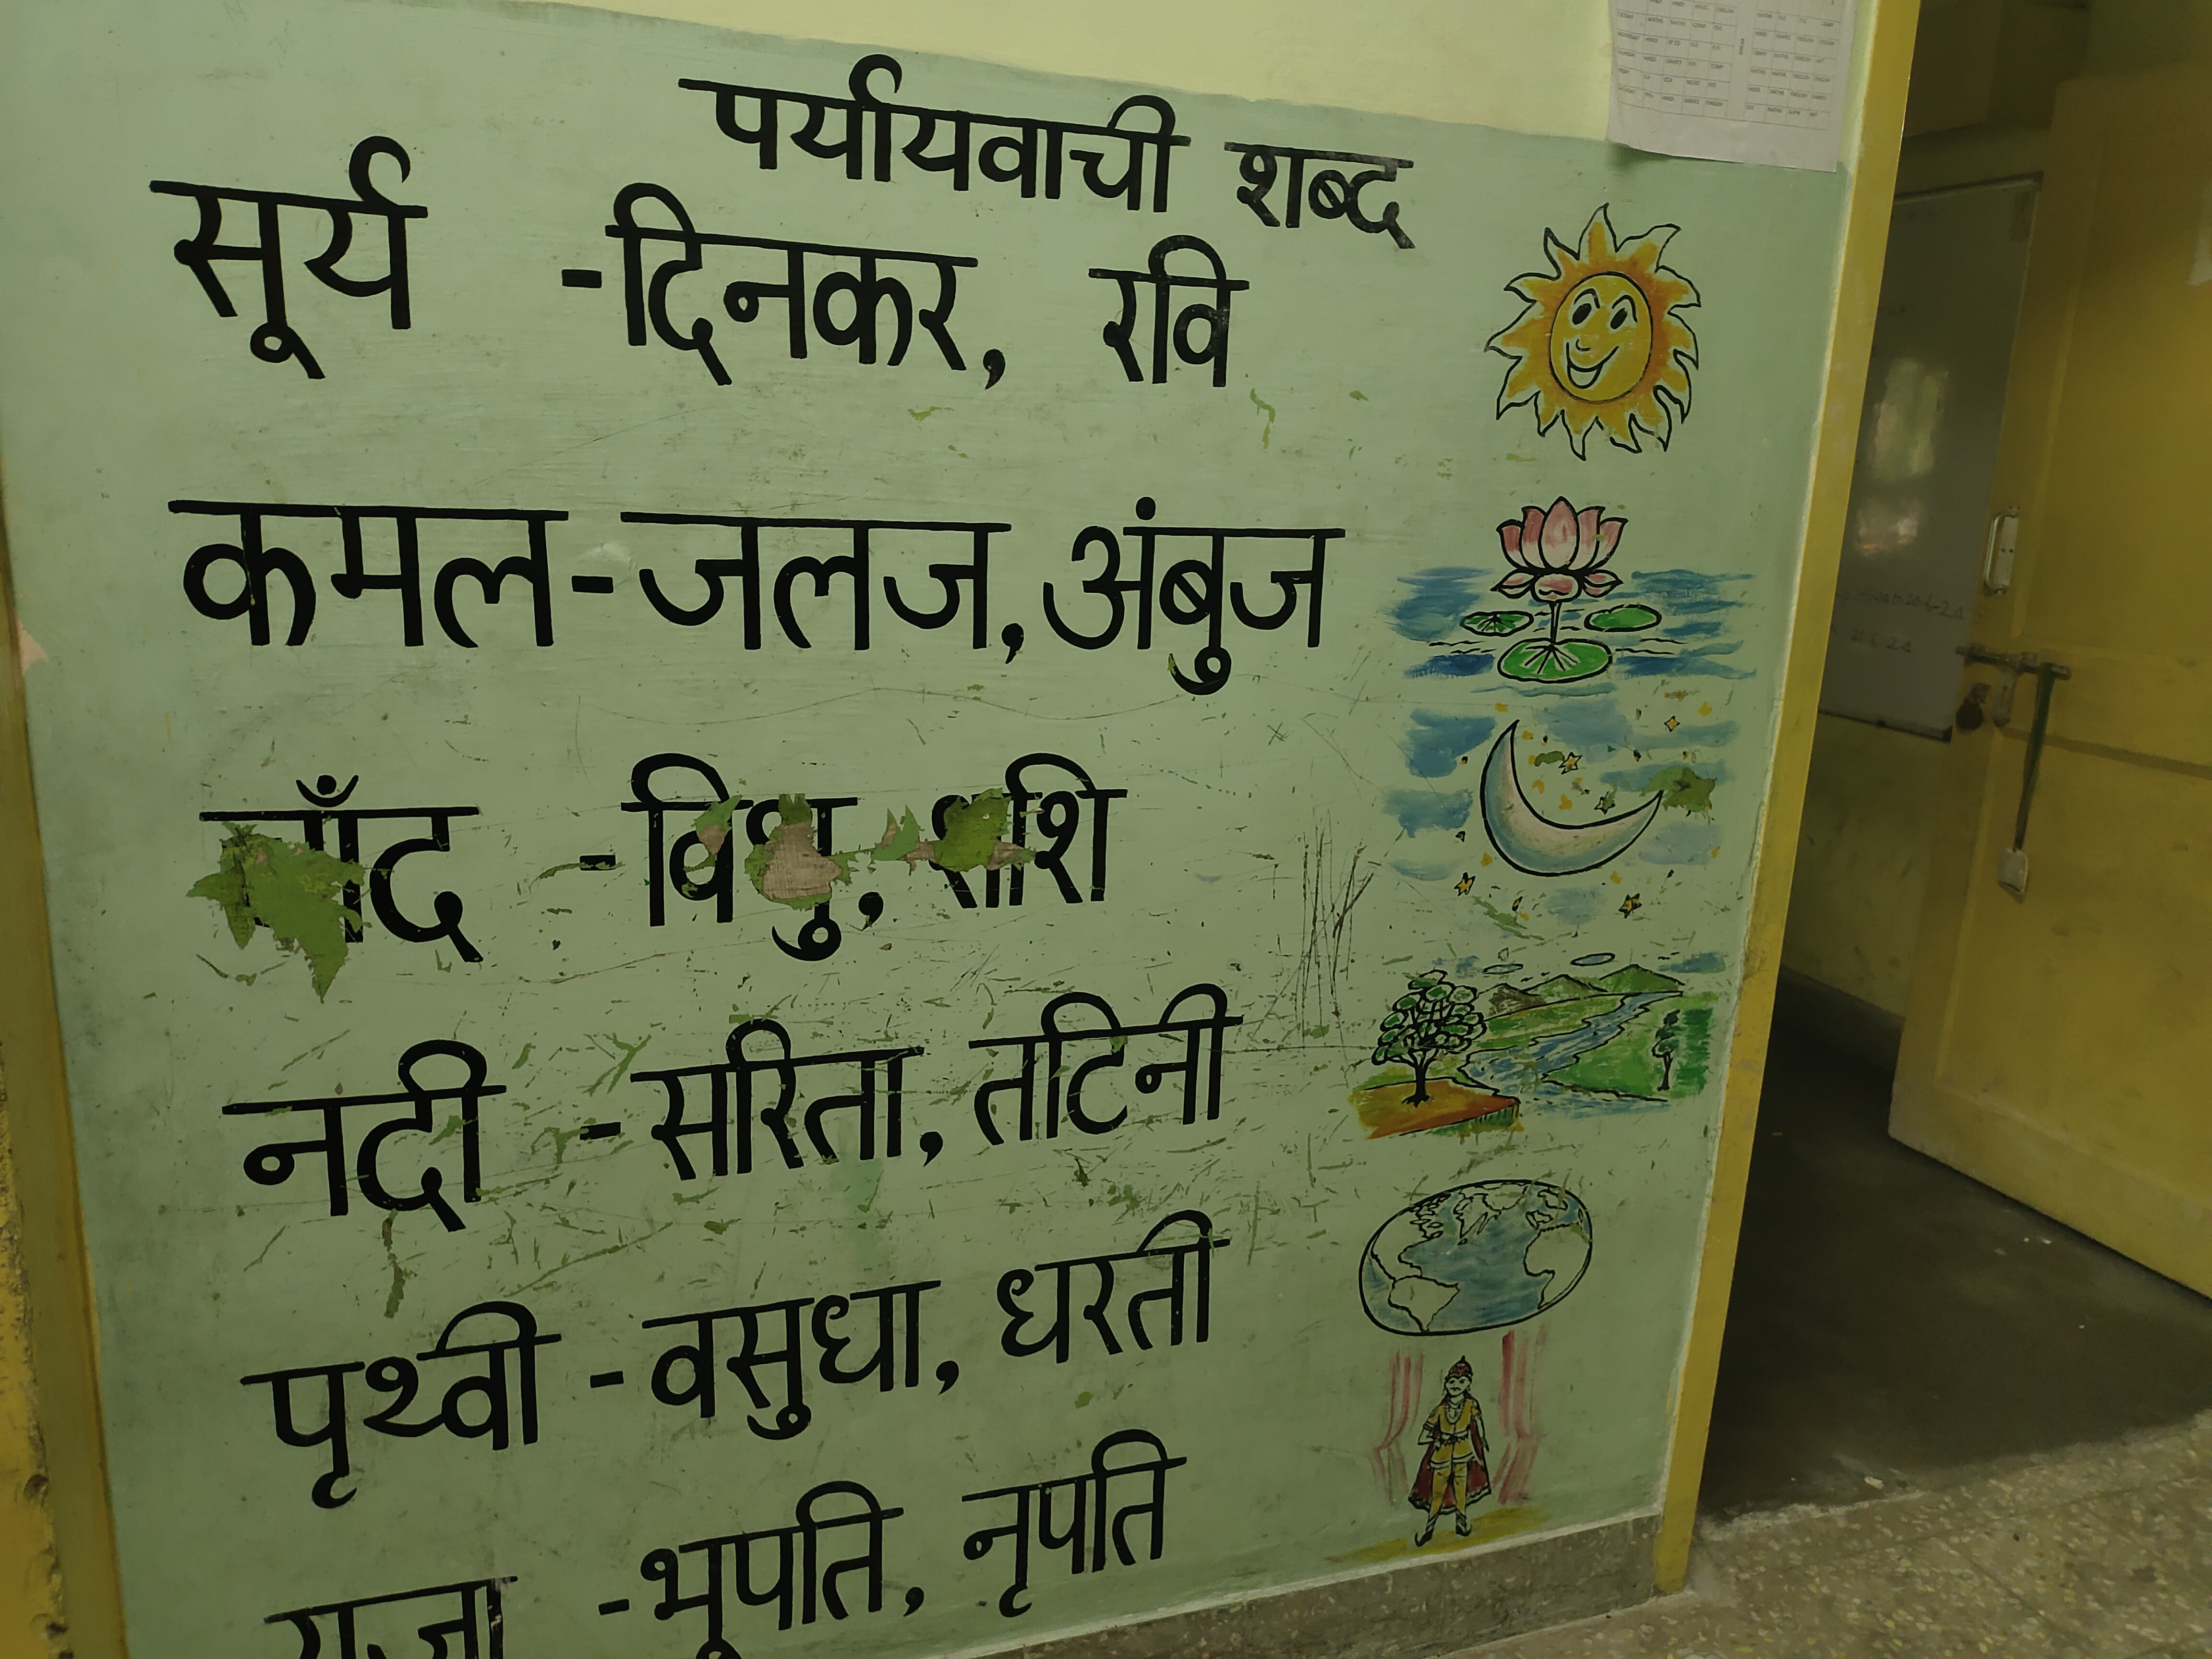 पर्यायवाची शब्द
सूर्य - दिनकर, रवि
कमल - जलज, अंबुज
चाँद - विधु, शशि
नदी - सरिता, तटिनी
पृथ्वी - वसुधा, धरती
राजा - भूपति, नृपति